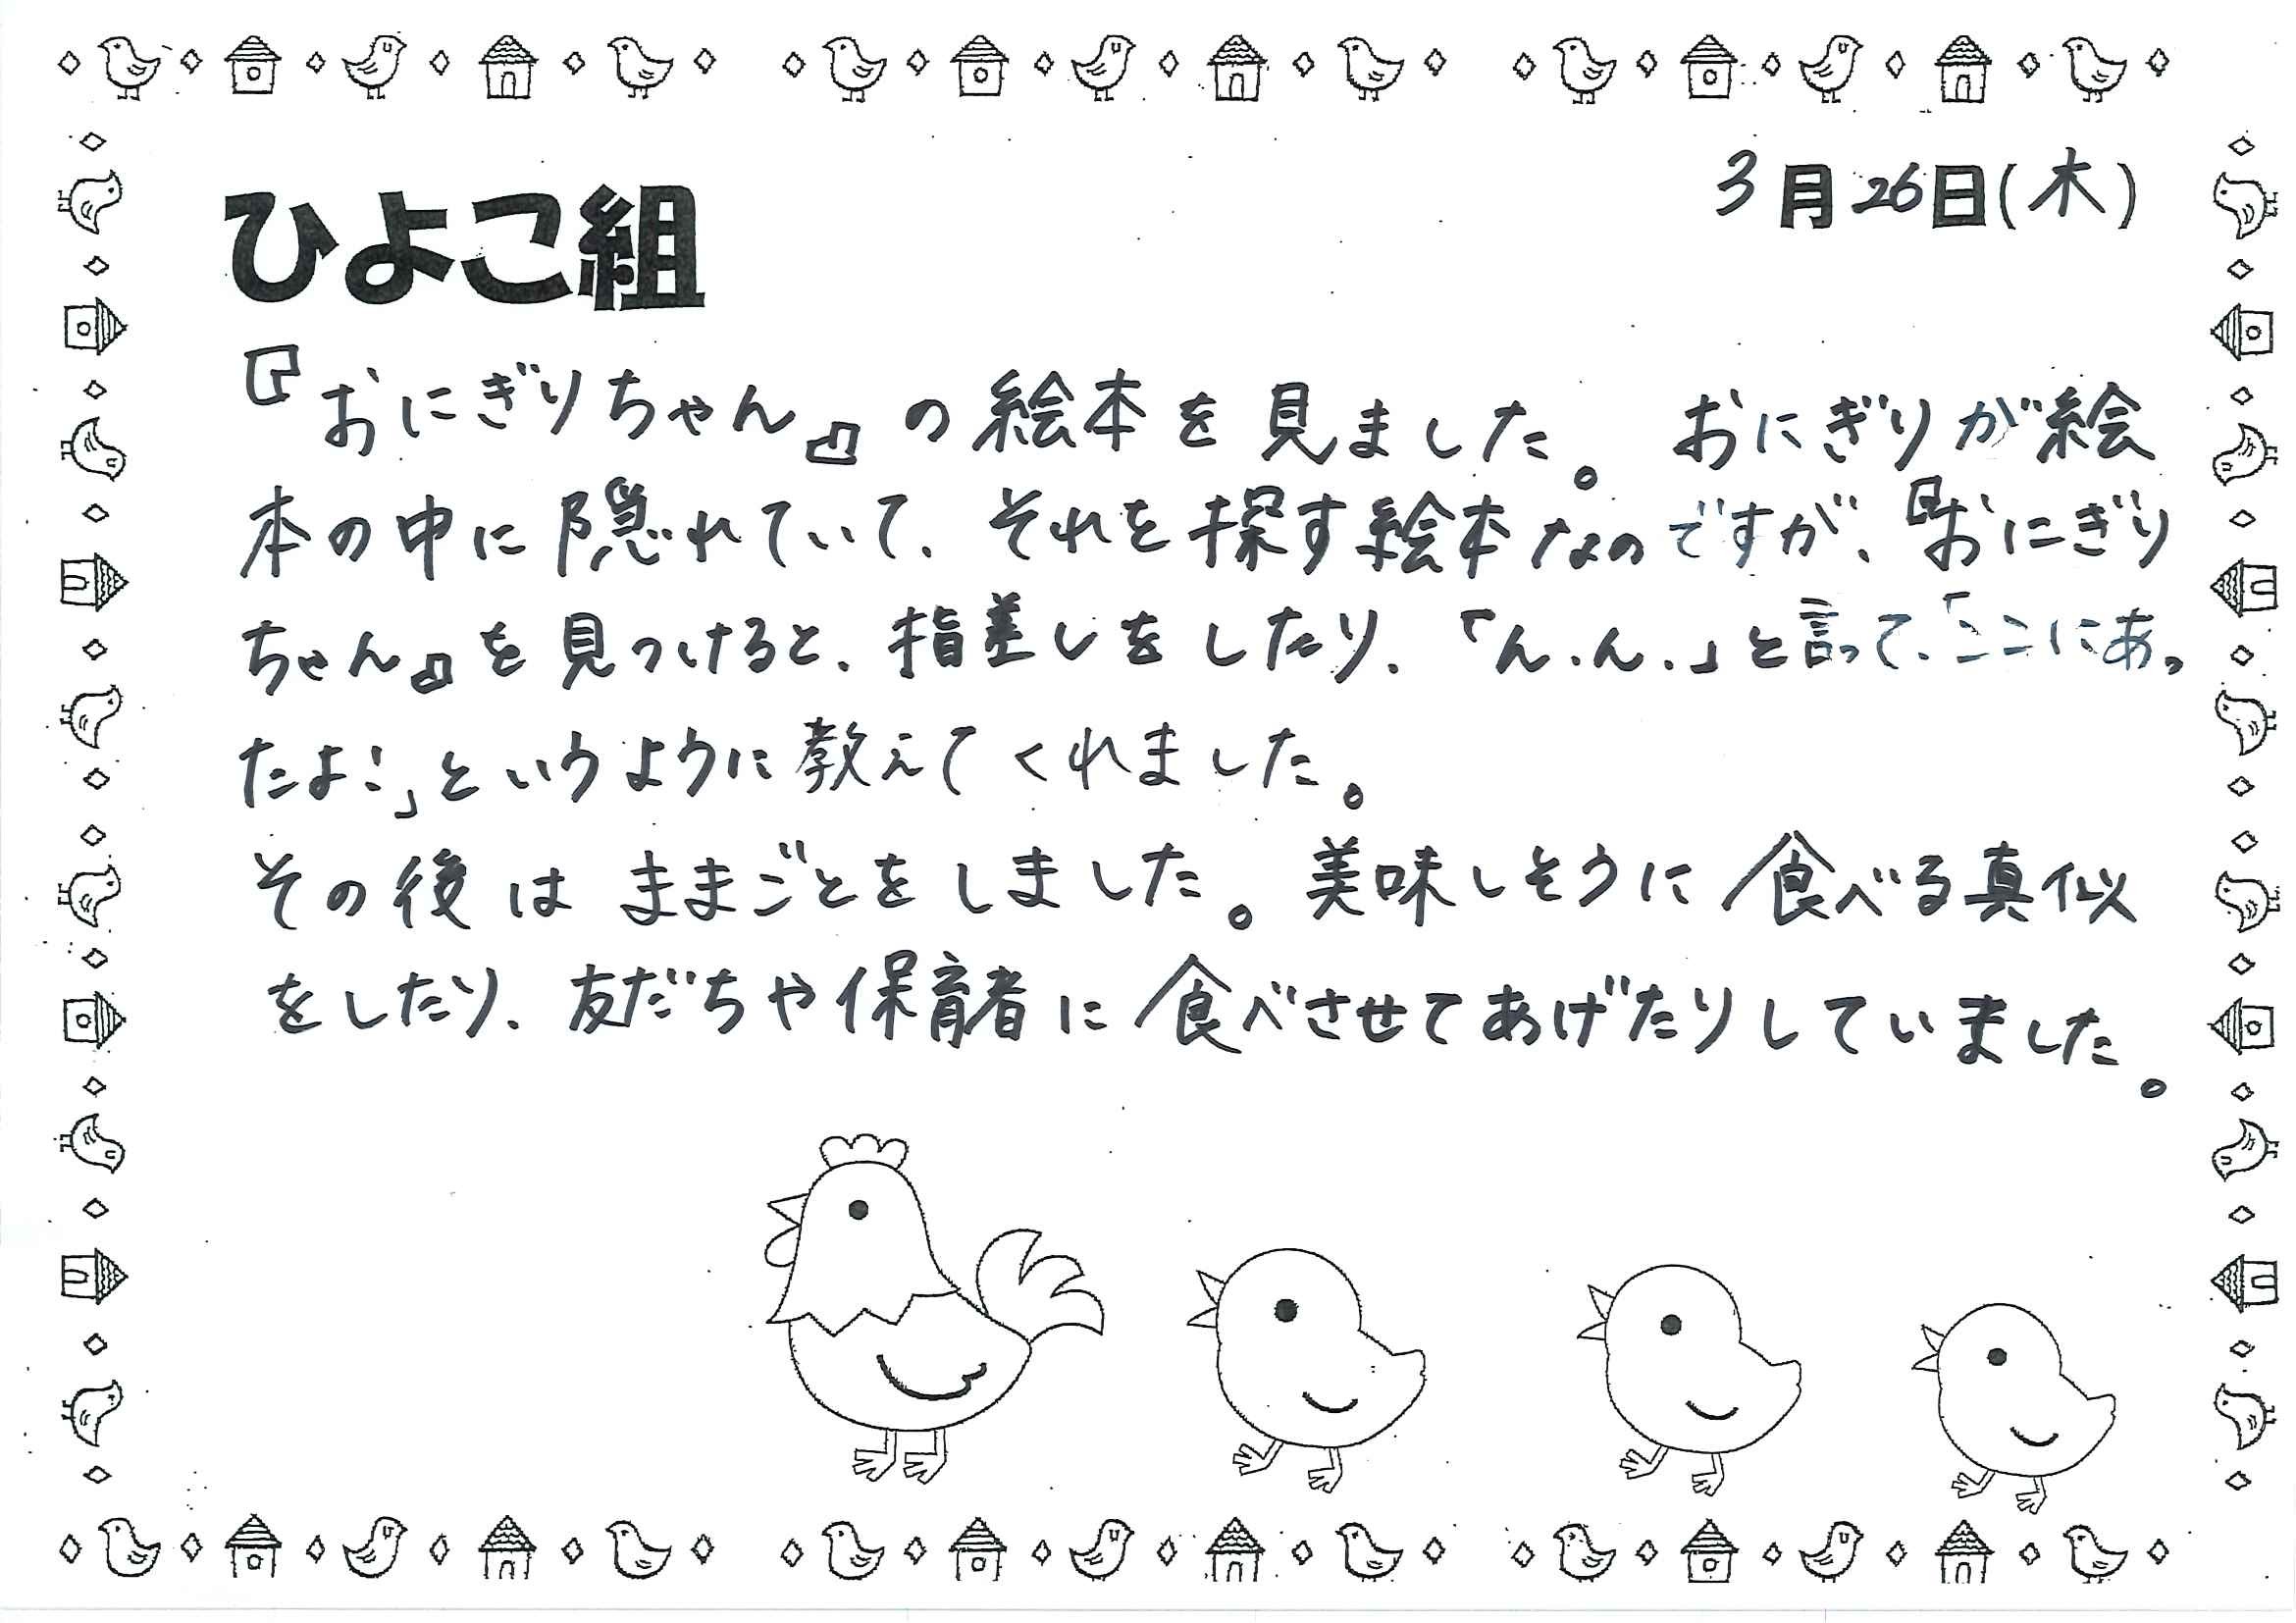 3月26日(木)
ひよこ組
『おにぎりちゃん』の絵本を見ました。おにぎりが絵
本の中に隠れていて、それを探す絵本なのですが、『おにぎり
ちゃん』を見つけると、指差しをしたり、「ん、ん、」と言って、「ここにあっ
たよ!」というように教えてくれました。
その後はままごとをしました。美味しそうに食べる真似
をしたり、友だちや保育者に食べさせてあげたりしていました。